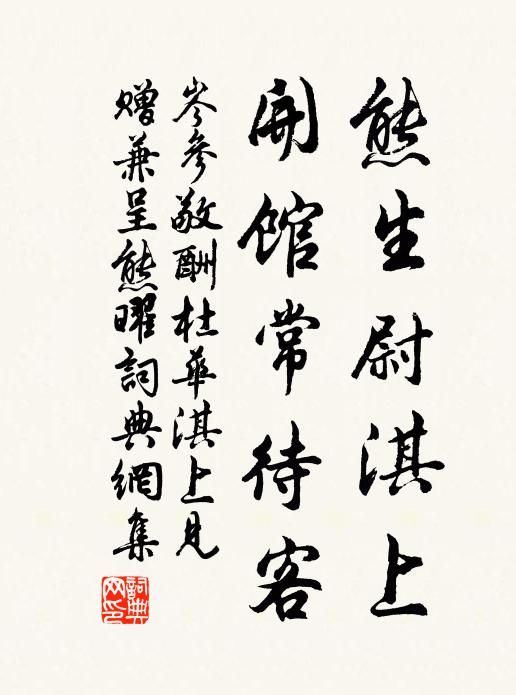 熊生尉淇上
開館常待客
岑參敬酬杜華淇上見
贈兼呈熊曜詞典網集
詞典网印